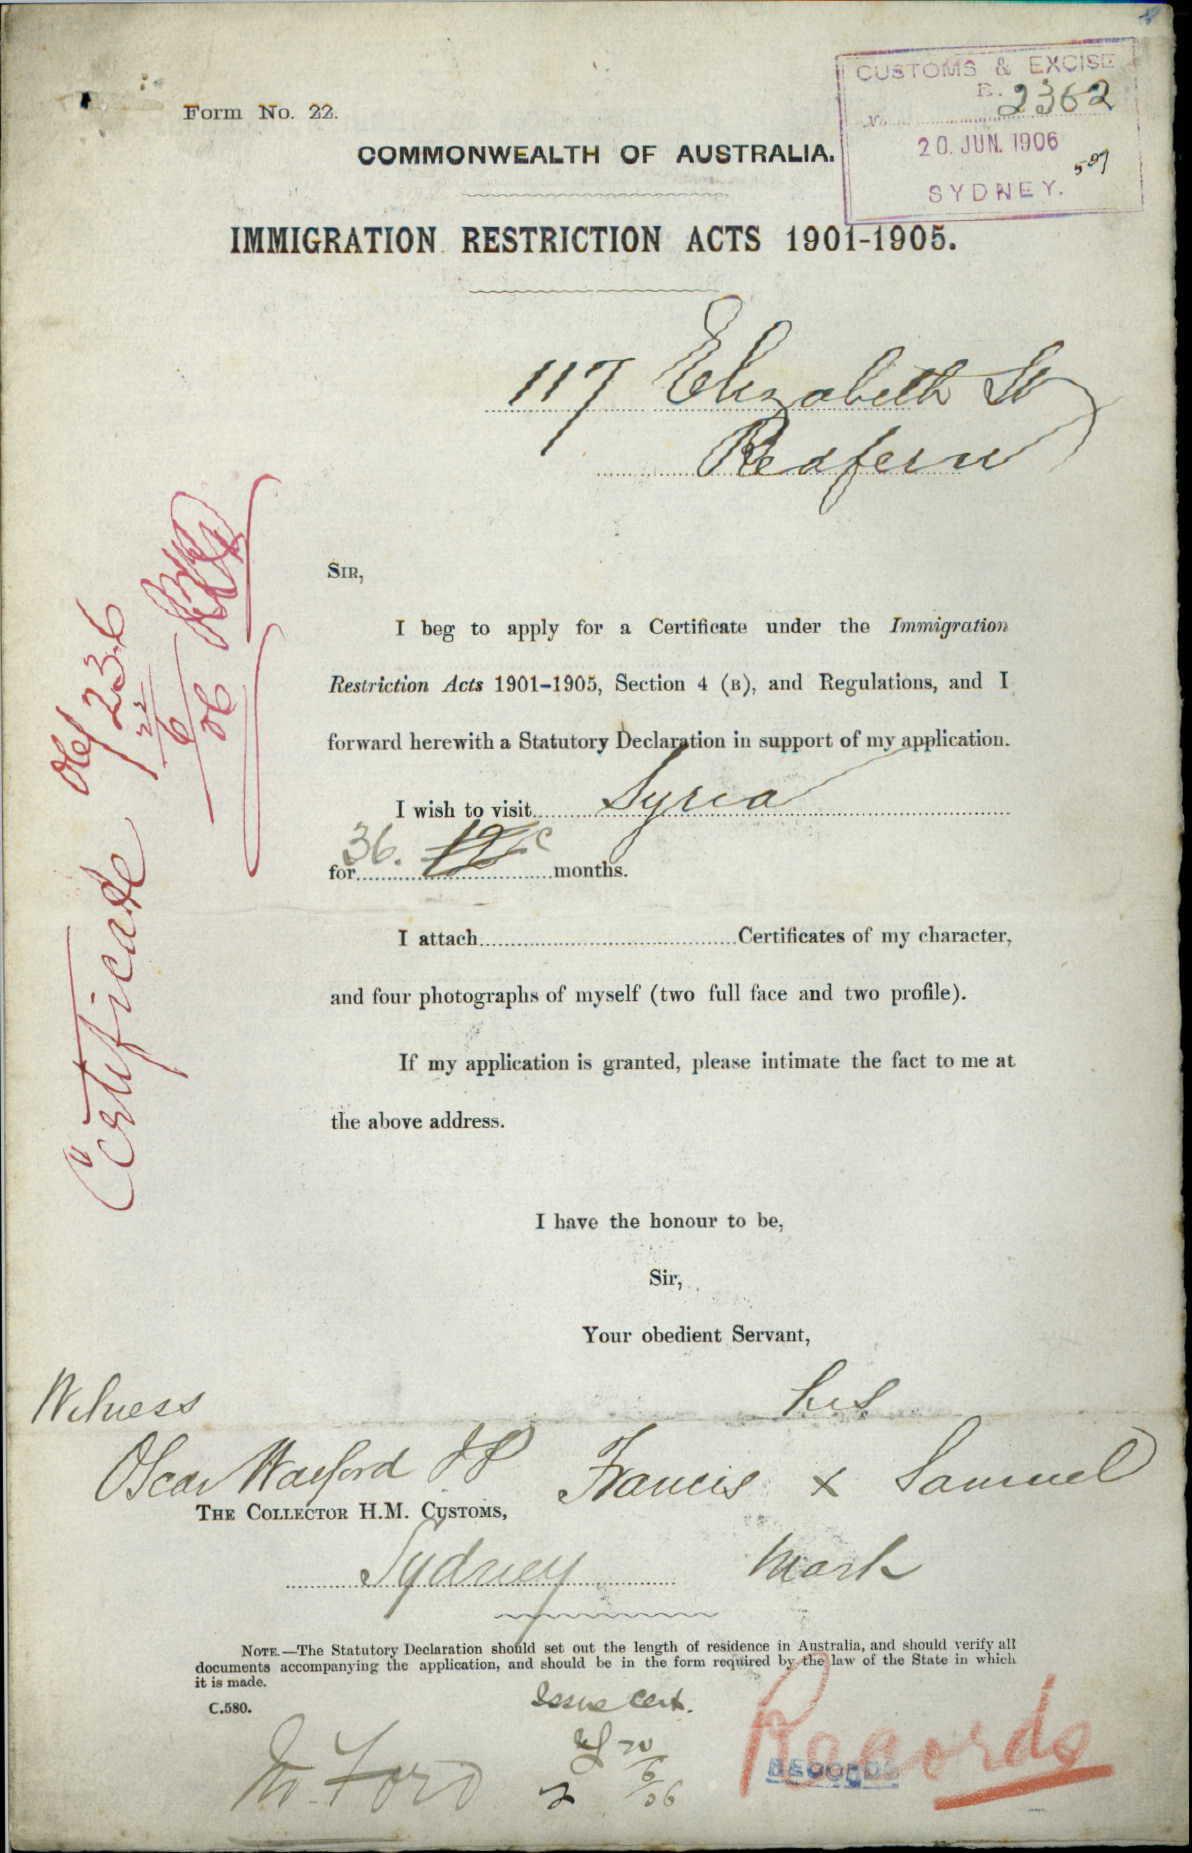 CUSTOMS & EXCISE
No. 2362
20. JUN. 1906
SYDNEY.
Form No. 22.
COMMONWEALTH OF AUSTRALIA.
IMMIGRATION RESTRICTION ACTS 1901-1905.
117 Elizabeth St
Redfern
SIR,
I beg to apply for a Certificate under the Immigration
Restriction Acts 1901-1905, Section 4 (B), and Regulations, and I
forward herewith a Statutory Declaration in support of my application.
I wish to visit Syria
for 36. 12 months.
I attach Certificates of my character,
and four photographs of myself (two full face and two profile).
If my application is granted, please intimate the fact to me at
the above address.
I have the honour to be,
Sir,
Your obedient Servant,
Witness
his
Oscar JP Francis x Samuel
THE COLLECTOR H.M. CUSTOMS,
Sydney
Mark
NOTE.—The Statutory Declaration should set out the length of residence in Australia, and should verify all
documents accompanying the application, and should be in the form required by the law of the State in which
it is made.
C.580.
Issue Cert.
20/6/06
Mr. Ford
Records
RECORDS
Certificate 06/236
22/6/06